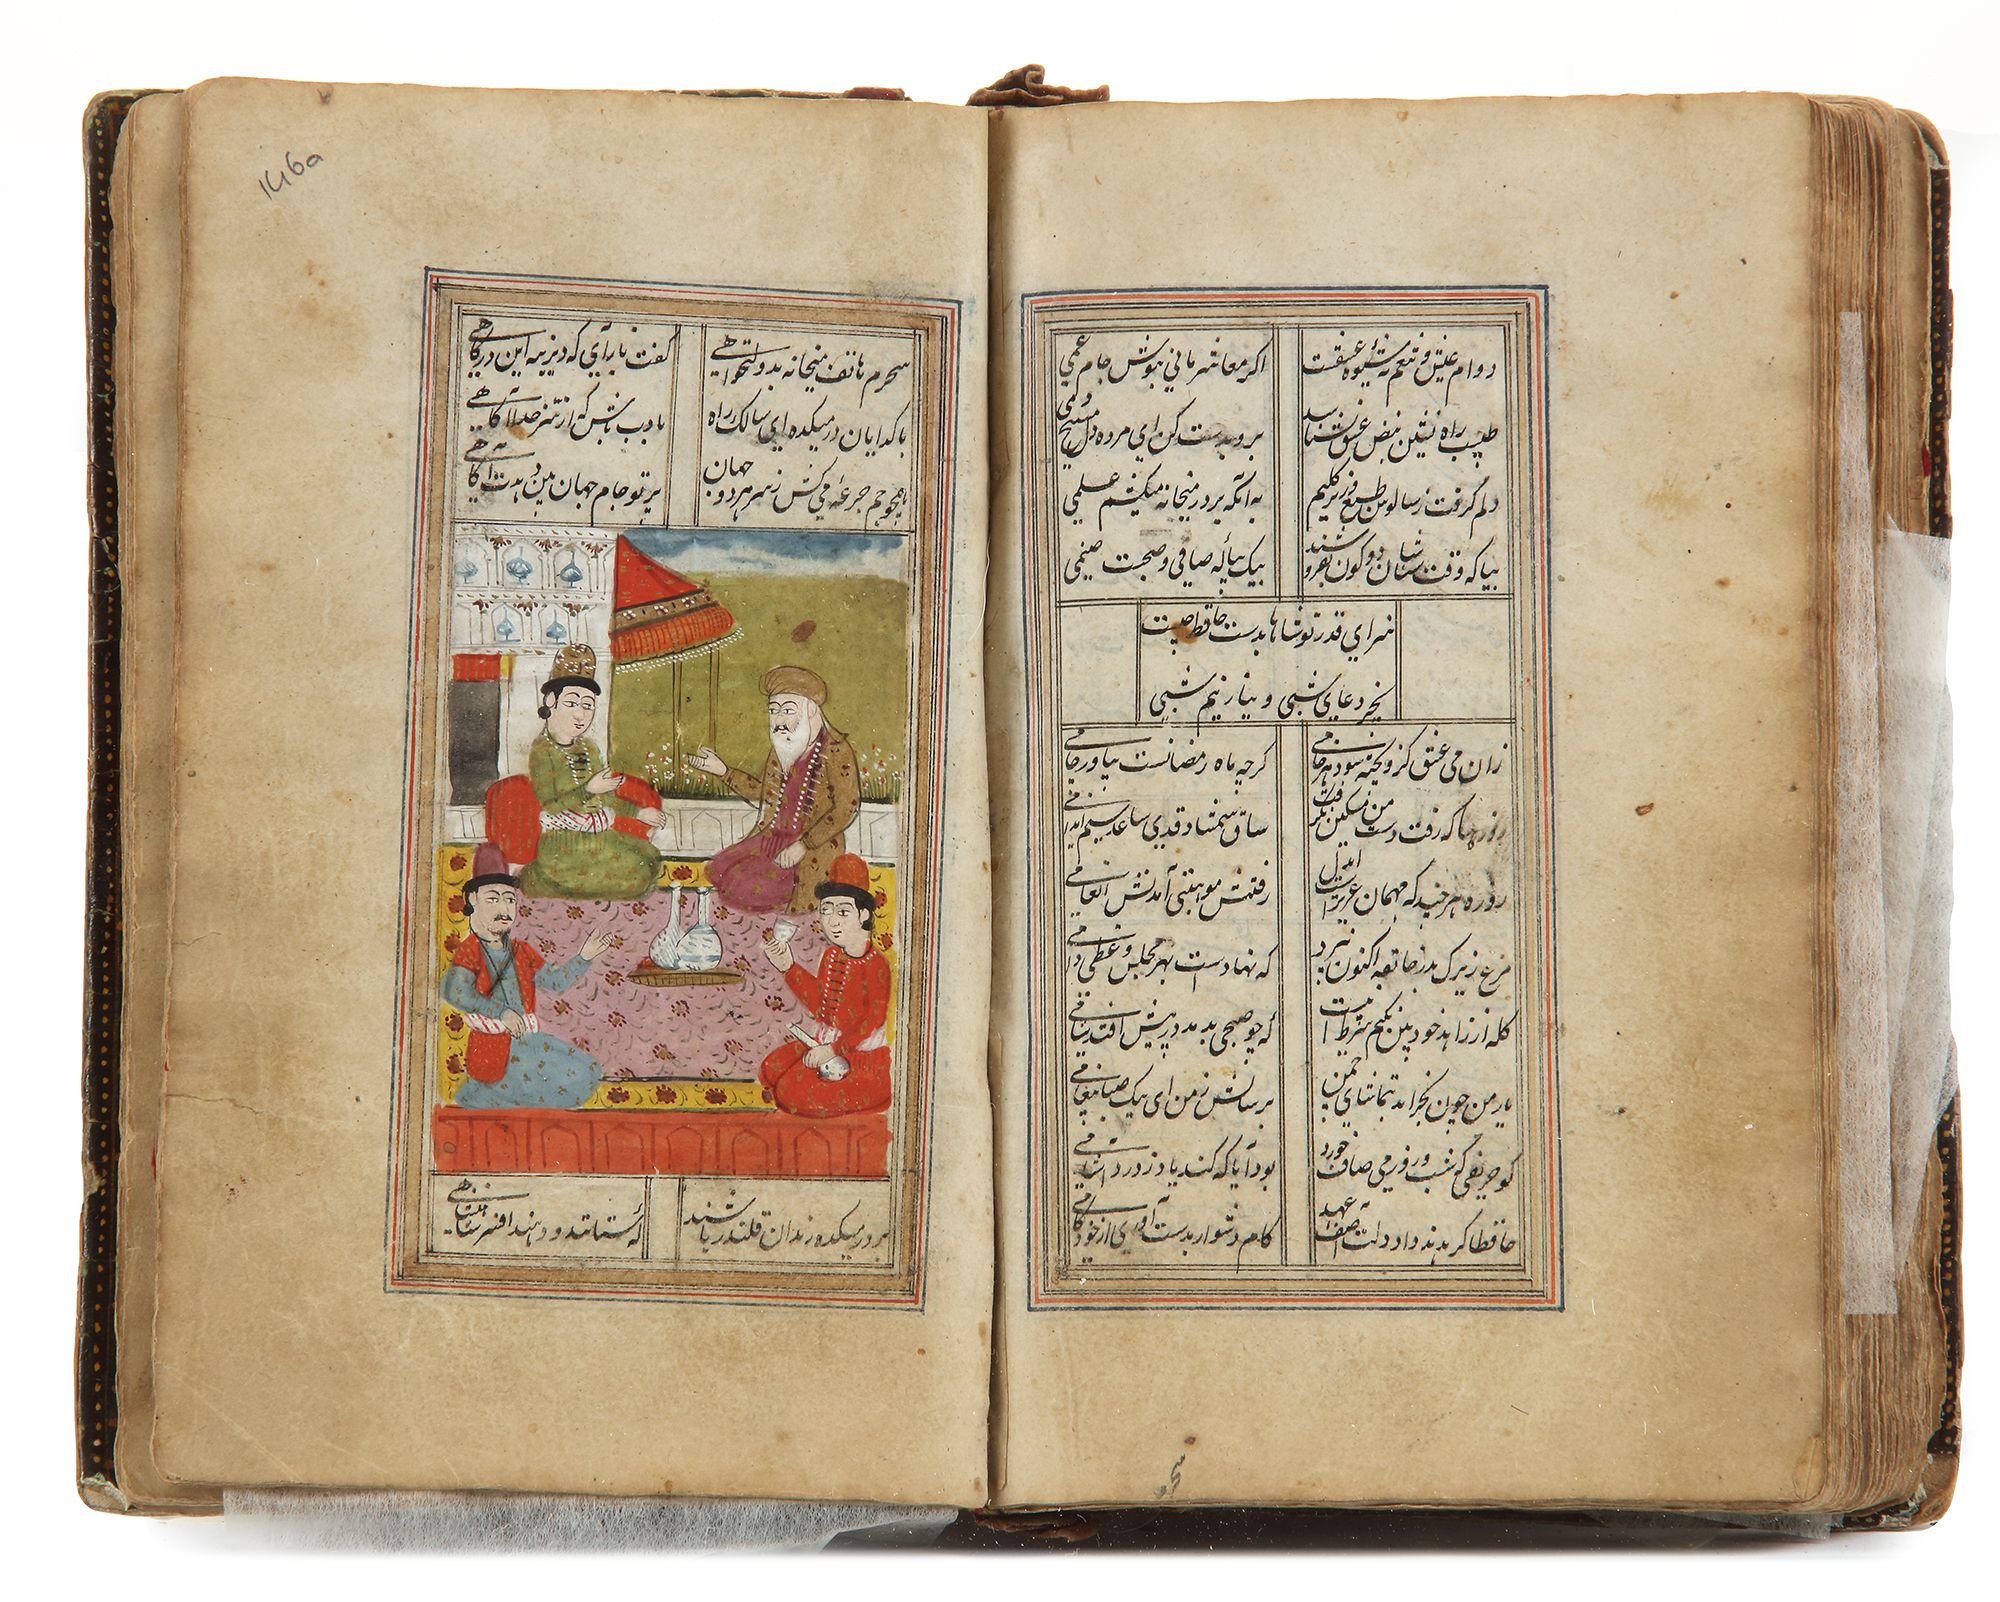 دوام عیش و تنعم نه شیوه عشقست اکر معاشر مائی بنوش جام غمی
طبیب راه نشین نبض عشق نشناسد برو بدست کن ای مرده دل مسیح دمی
دلم کرفت ز سالوس و طبل زیر کلیم به آنکه بر در میخانه میکشم علمی
بیا که وقت شناسان دو کون بفروشند بیک پیاله صافی و صحبت صنمی
سزای قدر تو شاها بدست حافظ چیست
بجز دعای شبی و نیاز نیم شبی
زان می عشق کزو پخته شود هر خامی کرچه ماه رمضانست بیاور جامی
روزها که رفت دست من مسکین نکرفت ساق شمشاد قدی ساعد سیم اندامی
روزه هر چند که مهمان عزیزست ایدل رفتنش موهبتی آمدنش انعامی
مرغ زیرک بدر خانقه اکنون نپرد که نهادست بهر مجلس وعظی دامی
کله از زاهد خود بین نکنم شرط اینست که چو صبحی بدمد در پیش افتد شامی
یار من چون بخرامد بتماشای چمن برسانش ز من ای پیک صبا پیغامی
کو حریفی که شب و روز می صاف خورد بود آیا که کند یاد ز درد آشامی
حافظا کر ندهد داد دلت آصف عهد کام دشوار بدست آوری از خود کامی
سحرم
146a
سحرم هاتف میخانه بدولتخواهی کفت باز آی که دیرینه این درکاهی
با کدایان در میکده ای سالک راه با ادب باش کر از سر خدا آکاهی
همچو جم جرعه می کش ز سر هر دو جهان پرتو جام جهان بین دهدت آکاهی
بر در میکده رندان قلندر باشند که ستانند و دهند افسر شاهنشاهی